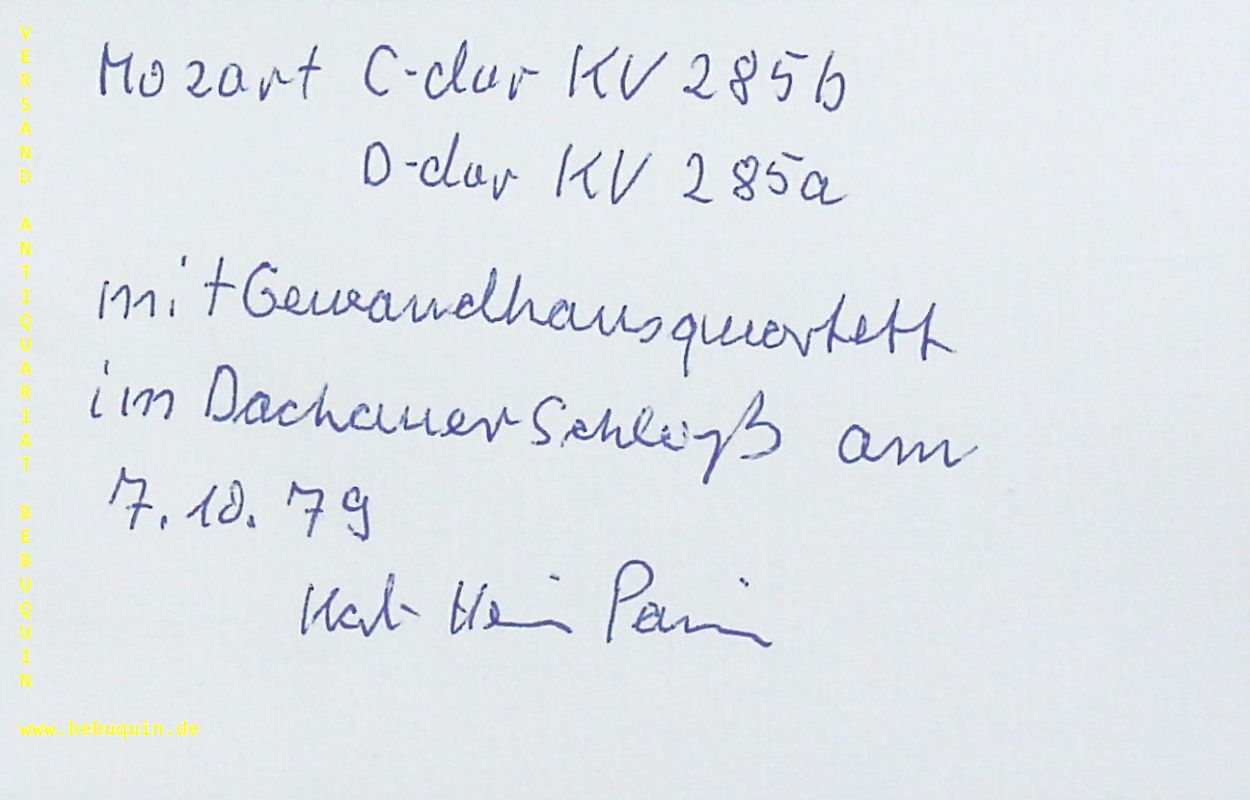 Mozart C-dur KV 285b
D-dur KV 285a
mit Gewandhausquartett
im Dachauer Schloß am
7.10.79
Karl-Heinz Passin
VERSAND ANTIQUARIAT BEBUQUIN
www.bebuquin.de